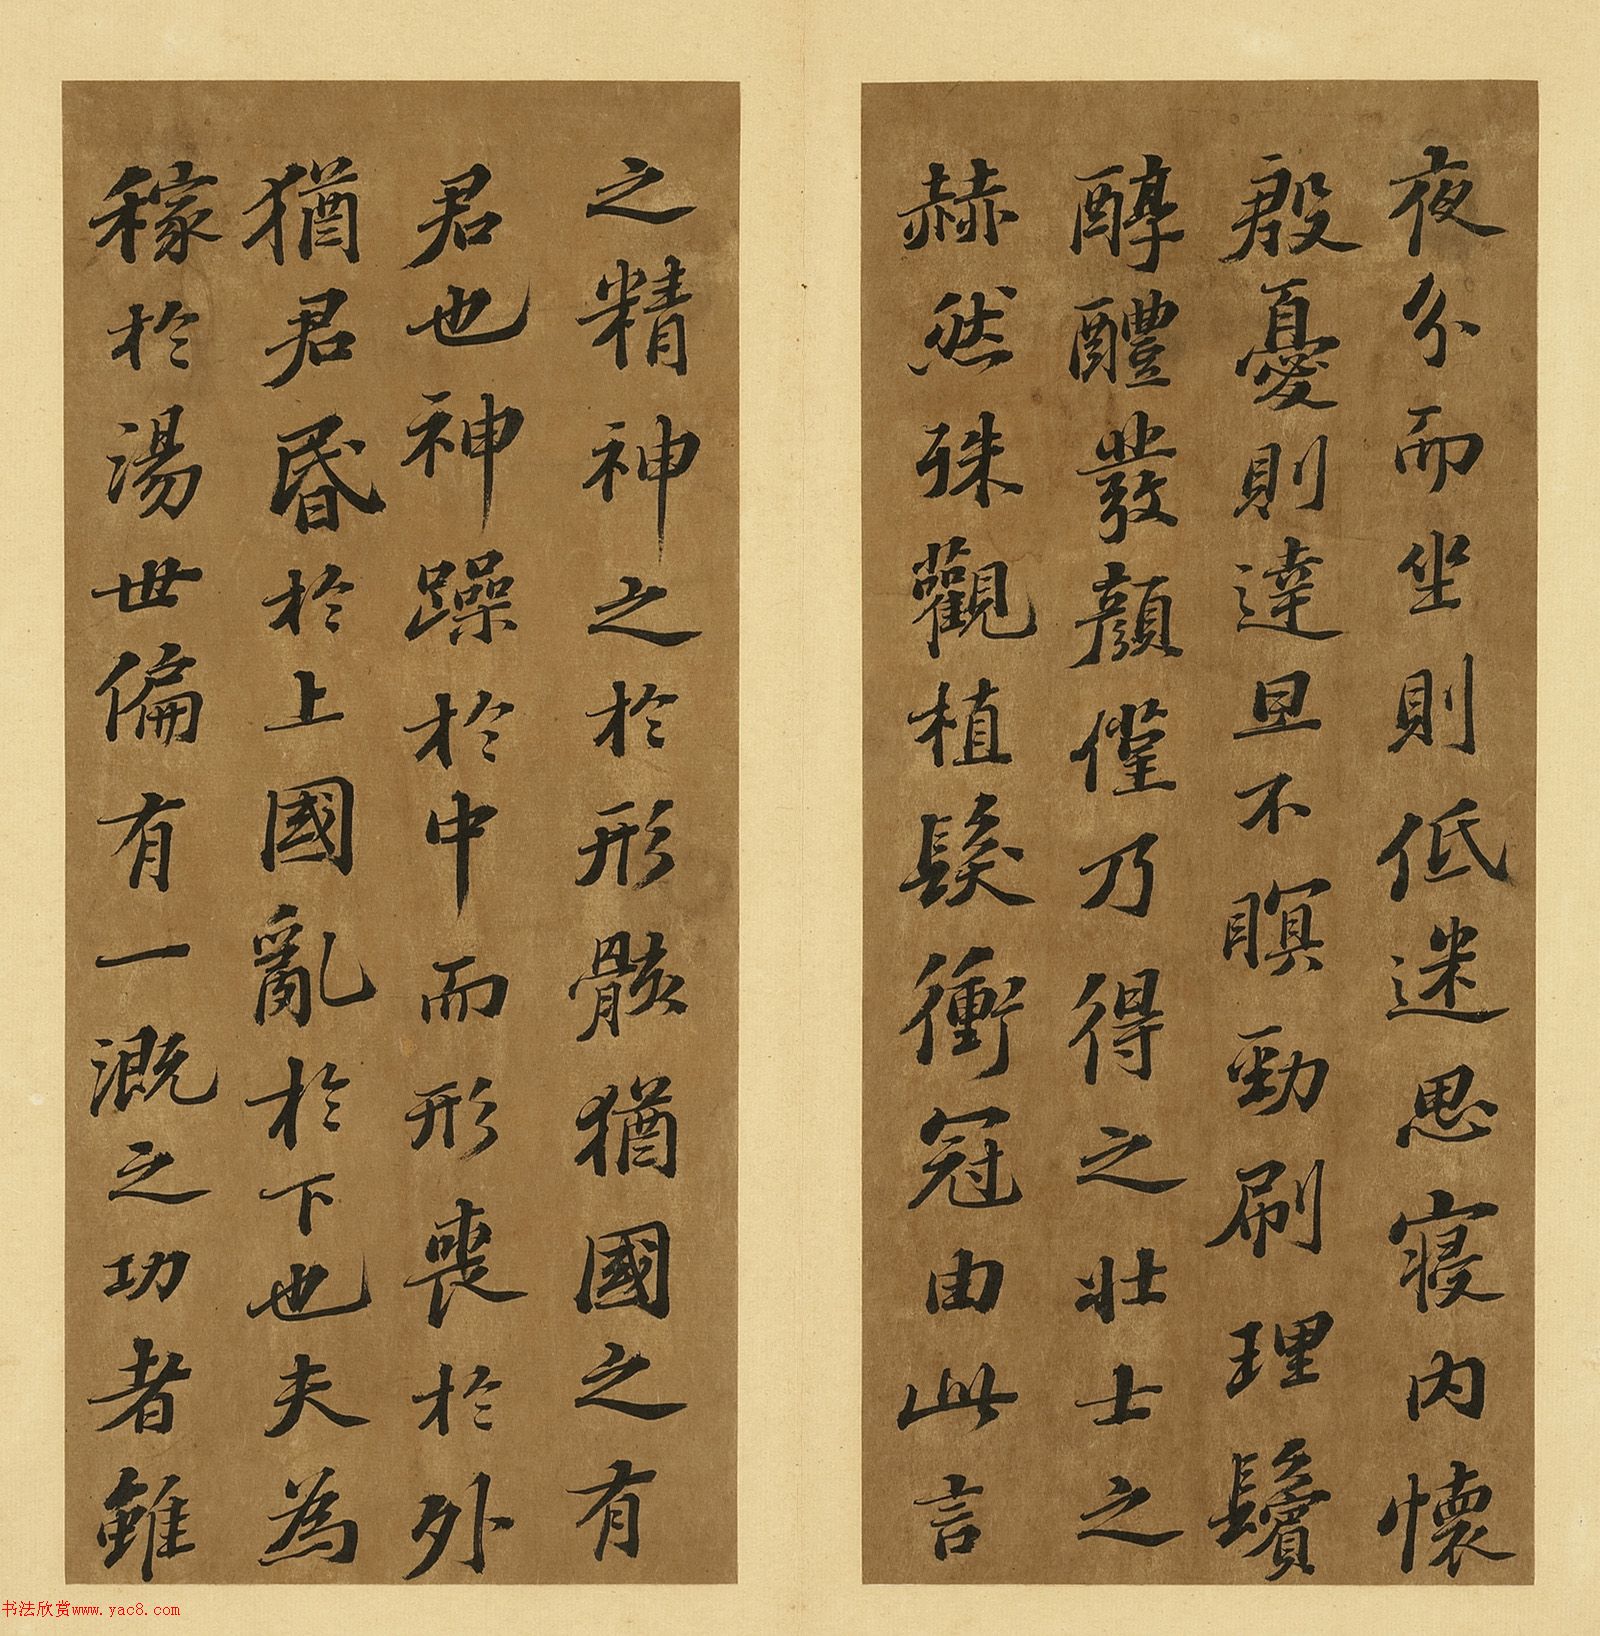 夜分而坐則低迷思寢內懷
殷憂則達旦不瞑勁刷理鬢
醇醴發顏僅乃得之壯士之
赫然殊觀植髮衝冠由此言
之精神之於形骸猶國之有
君也神躁於中而形喪於外
猶君昬於上國亂於下也夫為
稼於湯世偏有一溉之功者雖
书法欣赏www.yac8.com